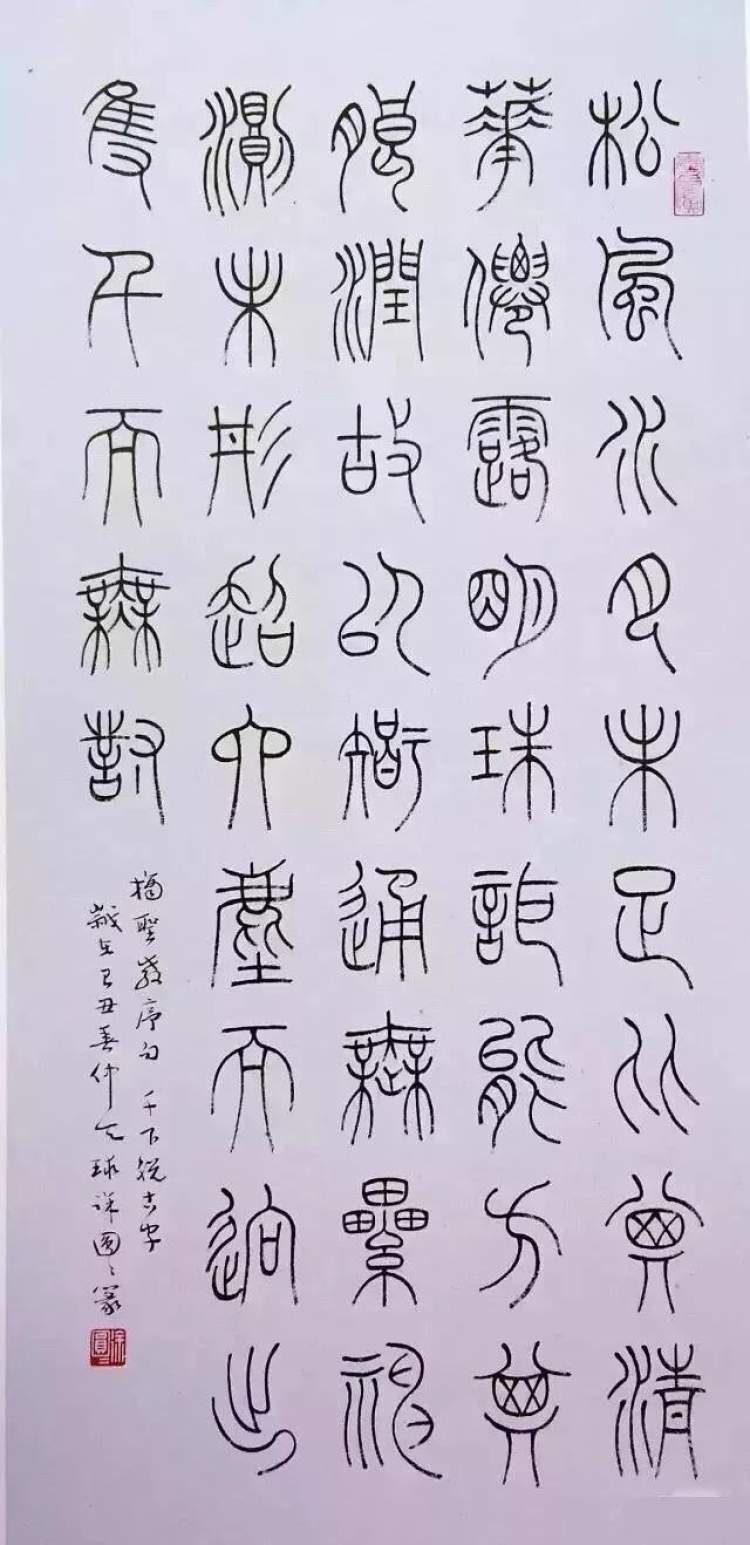 松風水月未足比其清
華僊露明珠詎能方其
朗潤故以智通無累神
測未形超六塵而迥出
隻千而無對
摘聖教序句 千下脫古字
歲己丑春仲球徐圓圓篆